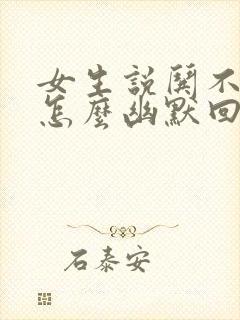 女生說關不
怎麼幽默回
石泰安